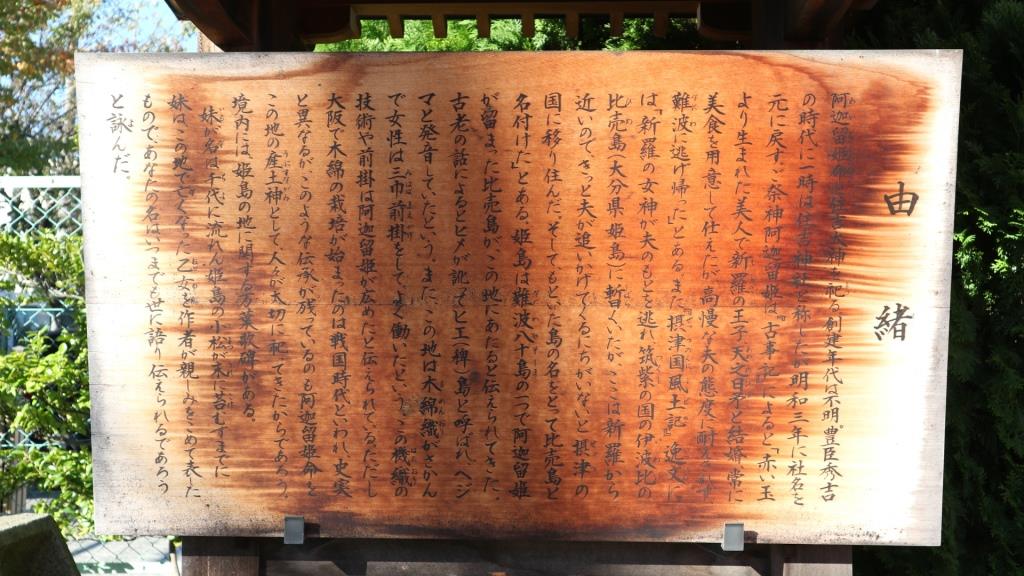 由緒
阿迦留姫命と住吉大神を祀る創建年代は不明豊臣秀吉
の時代に一時は住吉神社と称したが明和三年に社名を
元に戻すご祭神阿迦留姫は、古事記によると「赤い玉
より生まれた美人で新羅の王子天之日矛と結婚、常に
美食を用意して仕えたが、高慢な夫の態度に耐えかね
難波に逃げ帰った」とある。また「摂津国風土記」逸文に
は、「新羅の女神が夫のもとを逃れ筑紫の国の伊波比の
比売島(大分県・姫島)に暫くいたが、ここは新羅から
近いので、きっと夫が追いかけてくるにちがいないと摂津の
国に移り住んだ。そしてもといた島の名をとって比売島と
名付けた」とある。姫島は難波八十島の一つで阿迦留姫
が留まった比売島が、この地にあたると伝えられてきた。
古老の話によるとヒメが訛ってヒエ(稗)島と呼ばれ、ヘジ
マと発音していたという。また、この地は木綿織がさかん
で女性は三巾前掛をして、よく働いたという。この機織の
技術や前掛は阿迦留姫が広めたと伝えられている。ただし
大阪で木綿の栽培が始まったのは戦国時代といわれ、史実
と異なるが、このような伝承が残っているのも阿迦留姫命を
この地の産土神として、人々が大切に祀ってきたからであろう。
境内には、姫島の地に関する万葉歌碑がある。
妹が名は千代に流れん姫島の小松が末に苔むすまでに
妹はこの地で亡くなった乙女を、作者が親しみをこめて表した
もので、あなたの名はいつまでも世に語り伝えられるであろう
と詠んだ。